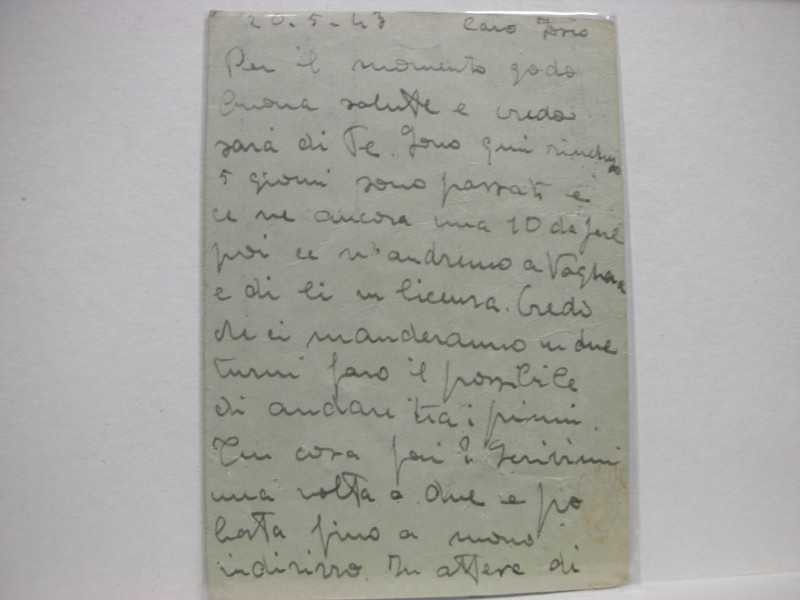 20-5-43 Caro
Per il momento godo
buona salutte e credo
sarà di Te. Sono qui rinchiuso
5 giorni sono passati e
ce ne ancora una 10 da fare
poi ce n'andremo a Voghera
e di li in licenza. Credo
che ci manderanno in due
turni farò il possibile
di andare tra i primi.
Tu cosa fai? Scrivimi
una volta o due e poi
basta fino a nuovo
indirizzo. In attesa di